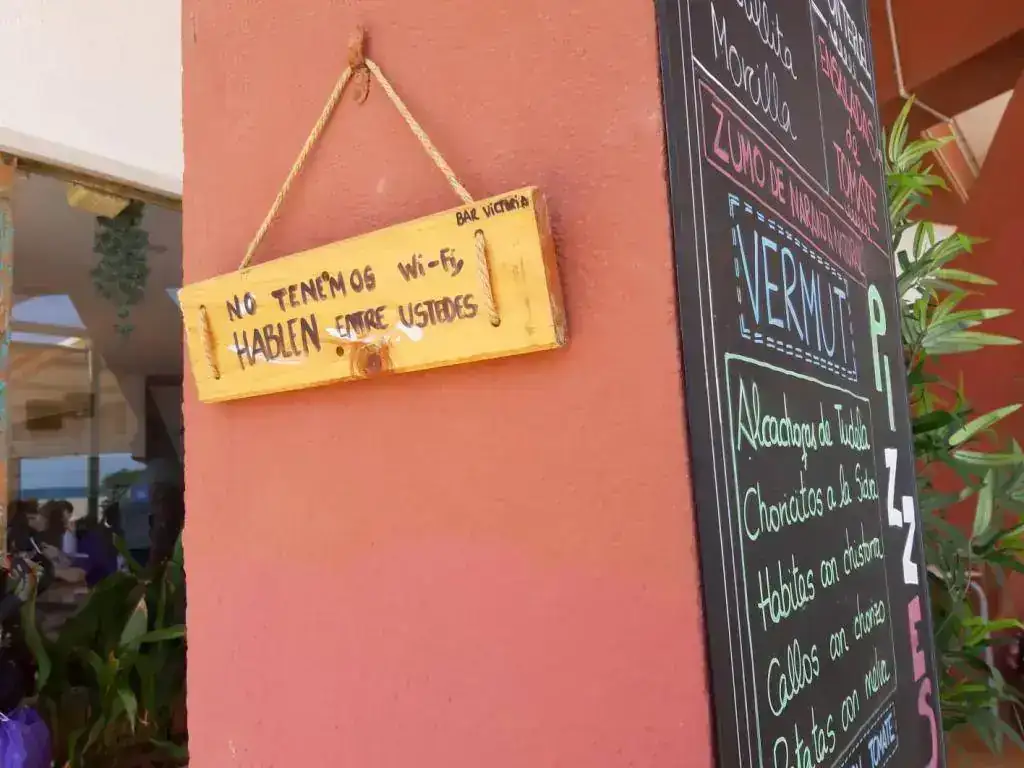 BAR VICTORIA
NO TENEMOS Wi-Fi,
HABLEN ENTRE USTEDES
Morcilla
ENSALADAS
de
TOMATE
ZUMO DE NARANJA NATURAL
VERMUT
Alcachofas de Tudela
Choricitos a la Sidra
Habitas con chistorra
Callos con chorizo
Patatas con
TOMATE
PIZZES